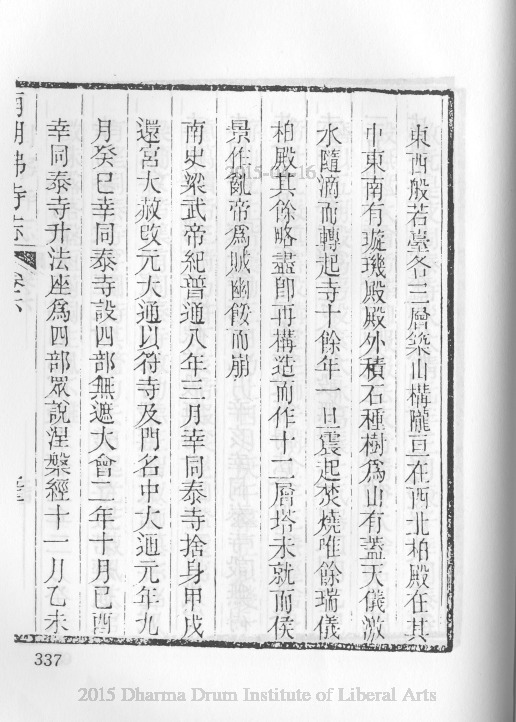 東西般若臺各三層築山構隴亘在西北柏殿在其
中東南有璇璣殿殿外積石種樹爲山有蓋天儀激
水隨滴而轉起寺十餘年一旦震起焚燒唯餘瑞儀
柏殿其餘略盡卽再構造而作十二層塔未就而侯
景作亂帝爲賊幽餒而崩
南史梁武帝紀普通八年三月幸同泰寺捨身甲戌
還宮大赦改元大通以符寺及門名中大通元年九
月癸巳幸同泰寺設四部無遮大會二年十月己酉
幸同泰寺升法座爲四部眾說涅槃經十一月乙未
南朝佛寺志 卷六
337
2015 Dharma Drum Institute of Liberal Arts